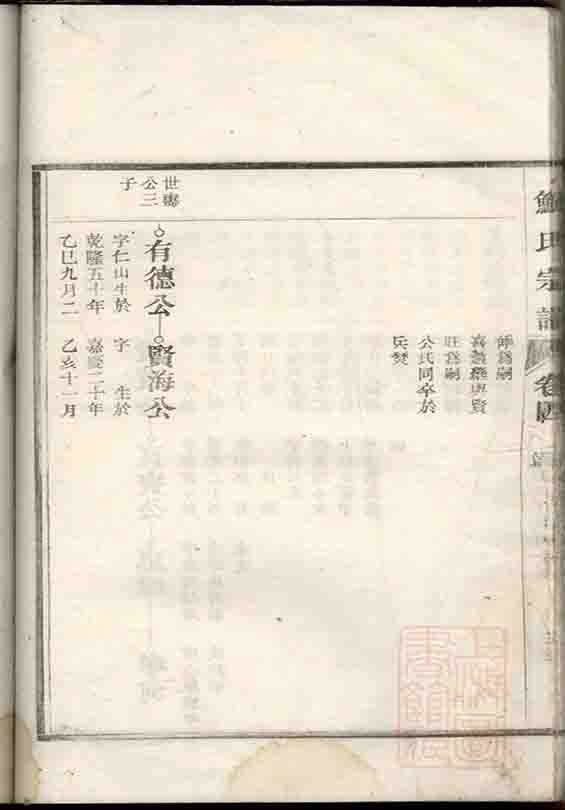 鮑氏宗譜 卷四
師爲嗣
喜無繼與賢
旺爲嗣
公氏同卒於
兵燹
世壽
公三
子
有德公 賢海公
字仁山生於 字 生於
乾隆五十年 嘉慶二十年
乙巳九月二 乙亥十一月